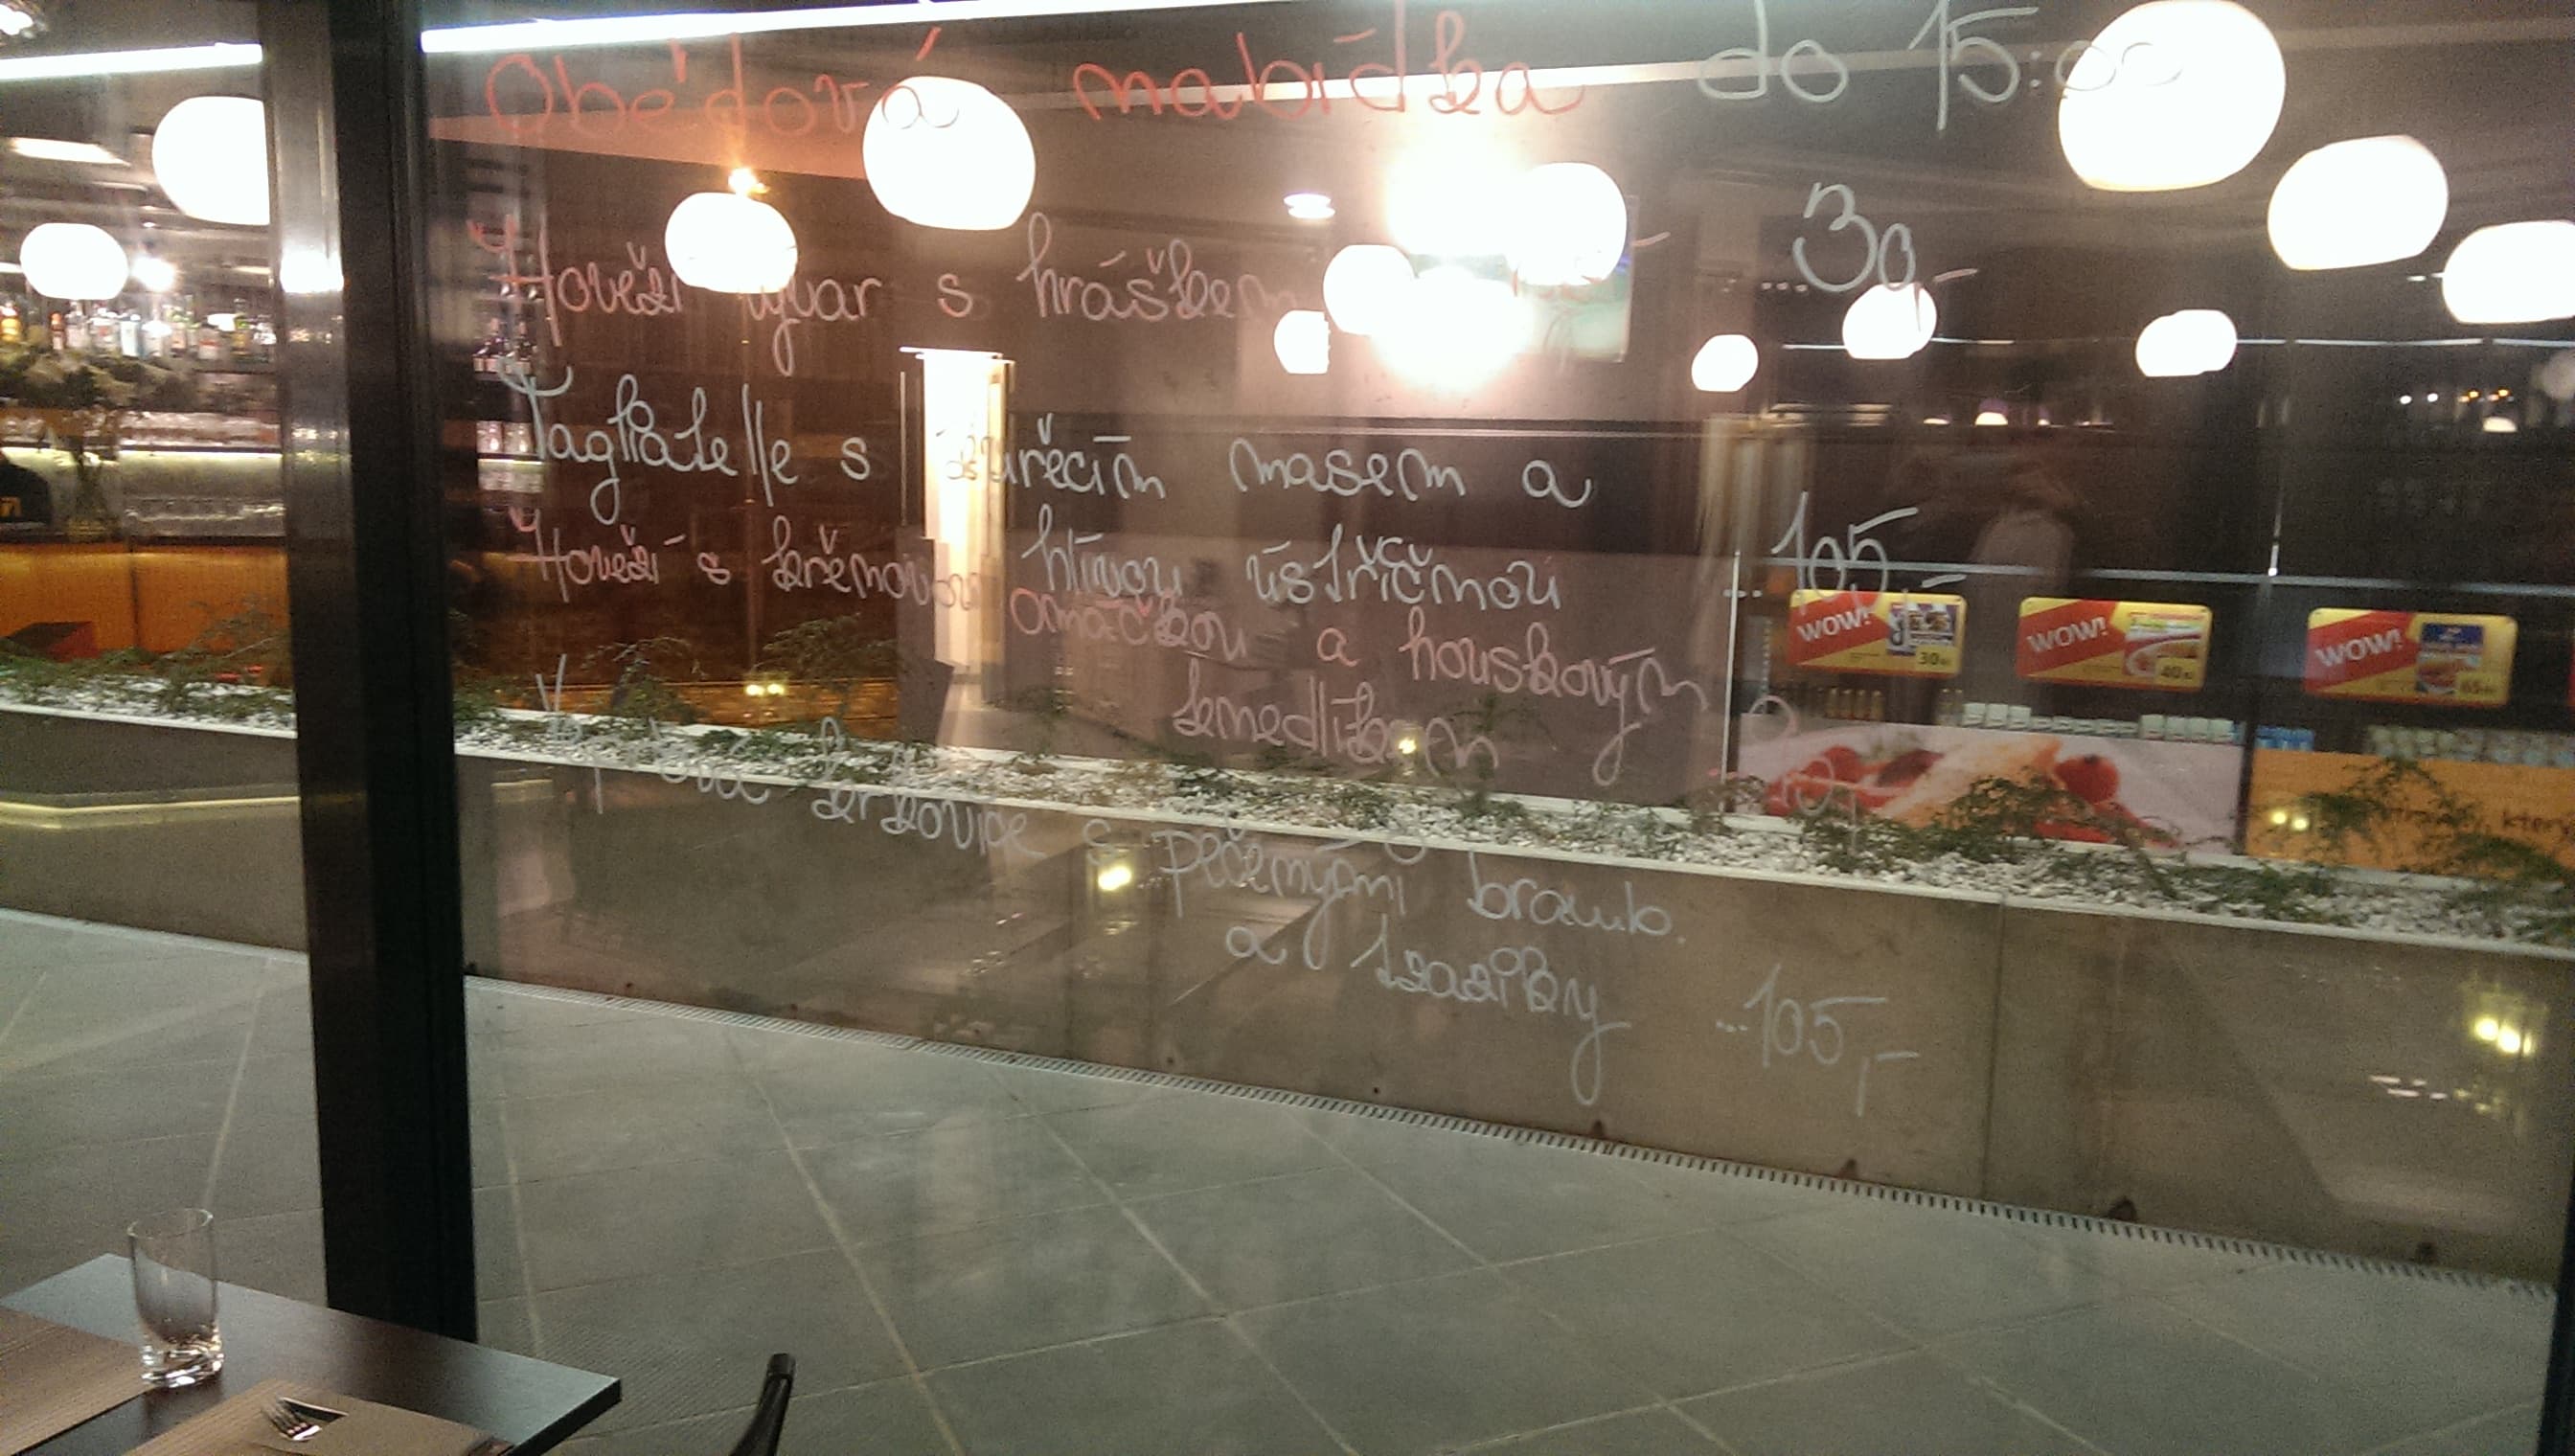 Obědová nabídka do 15:00
Hovězí vývar s hráškem ...30,-
Tagliatelle s kuřecím masem a
hlívou ústřičnou ... 105,-
Hovězí s křenovou omáčkou a houskovým
knedlíkem
Vepřová krkovice s pečenými bramb.
a tzatziky ...105,-
WOW!
30
WOW!
40
WOW!
65